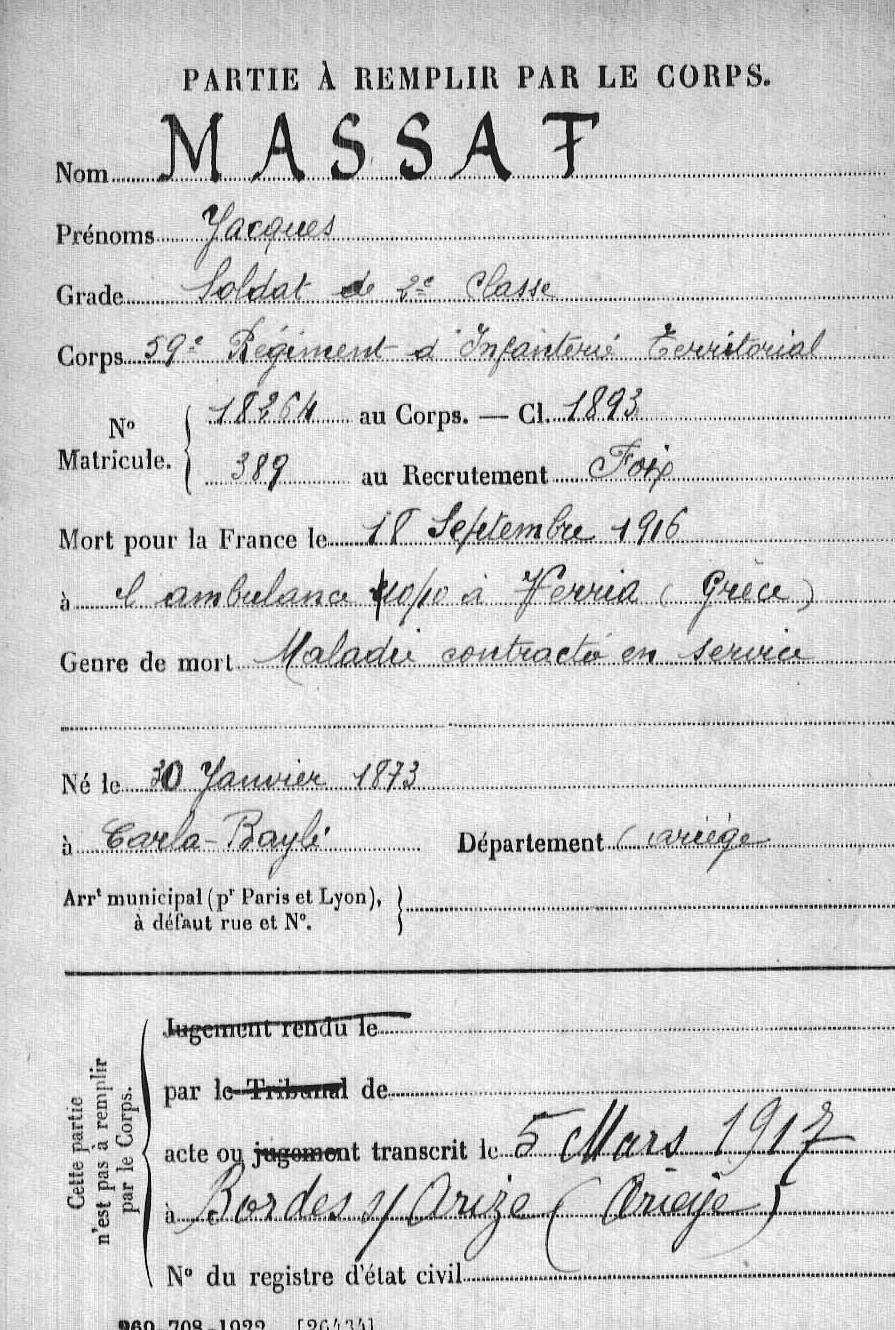 PARTIE À REMPLIR PAR LE CORPS.
Nom MASSAT
Prénoms Jacques
Grade Soldat de 2e Classe
Corps 59e Régiment d'Infanterie Territorial
No Matricule. { 18264 au Corps. — Cl. 1893
389 au Recrutement Foix
Mort pour la France le 18 Septembre 1916
à l'ambulance à Verria (Grèce)
Genre de mort Maladie contracté en service
Né le 30 Janvier 1873
à Carla-Bayle Département (ariège
Arrt municipal (pr Paris et Lyon), }
à défaut rue et No.
Cette partie
n'est pas à remplir
par le Corps.
Jugement rendu le
par le Tribunal de
acte ou jugement transcrit le 5 Mars 1917
à Bordes s/ Arize (Ariège)
No du registre d'état civil
969-708-1922. [26434]